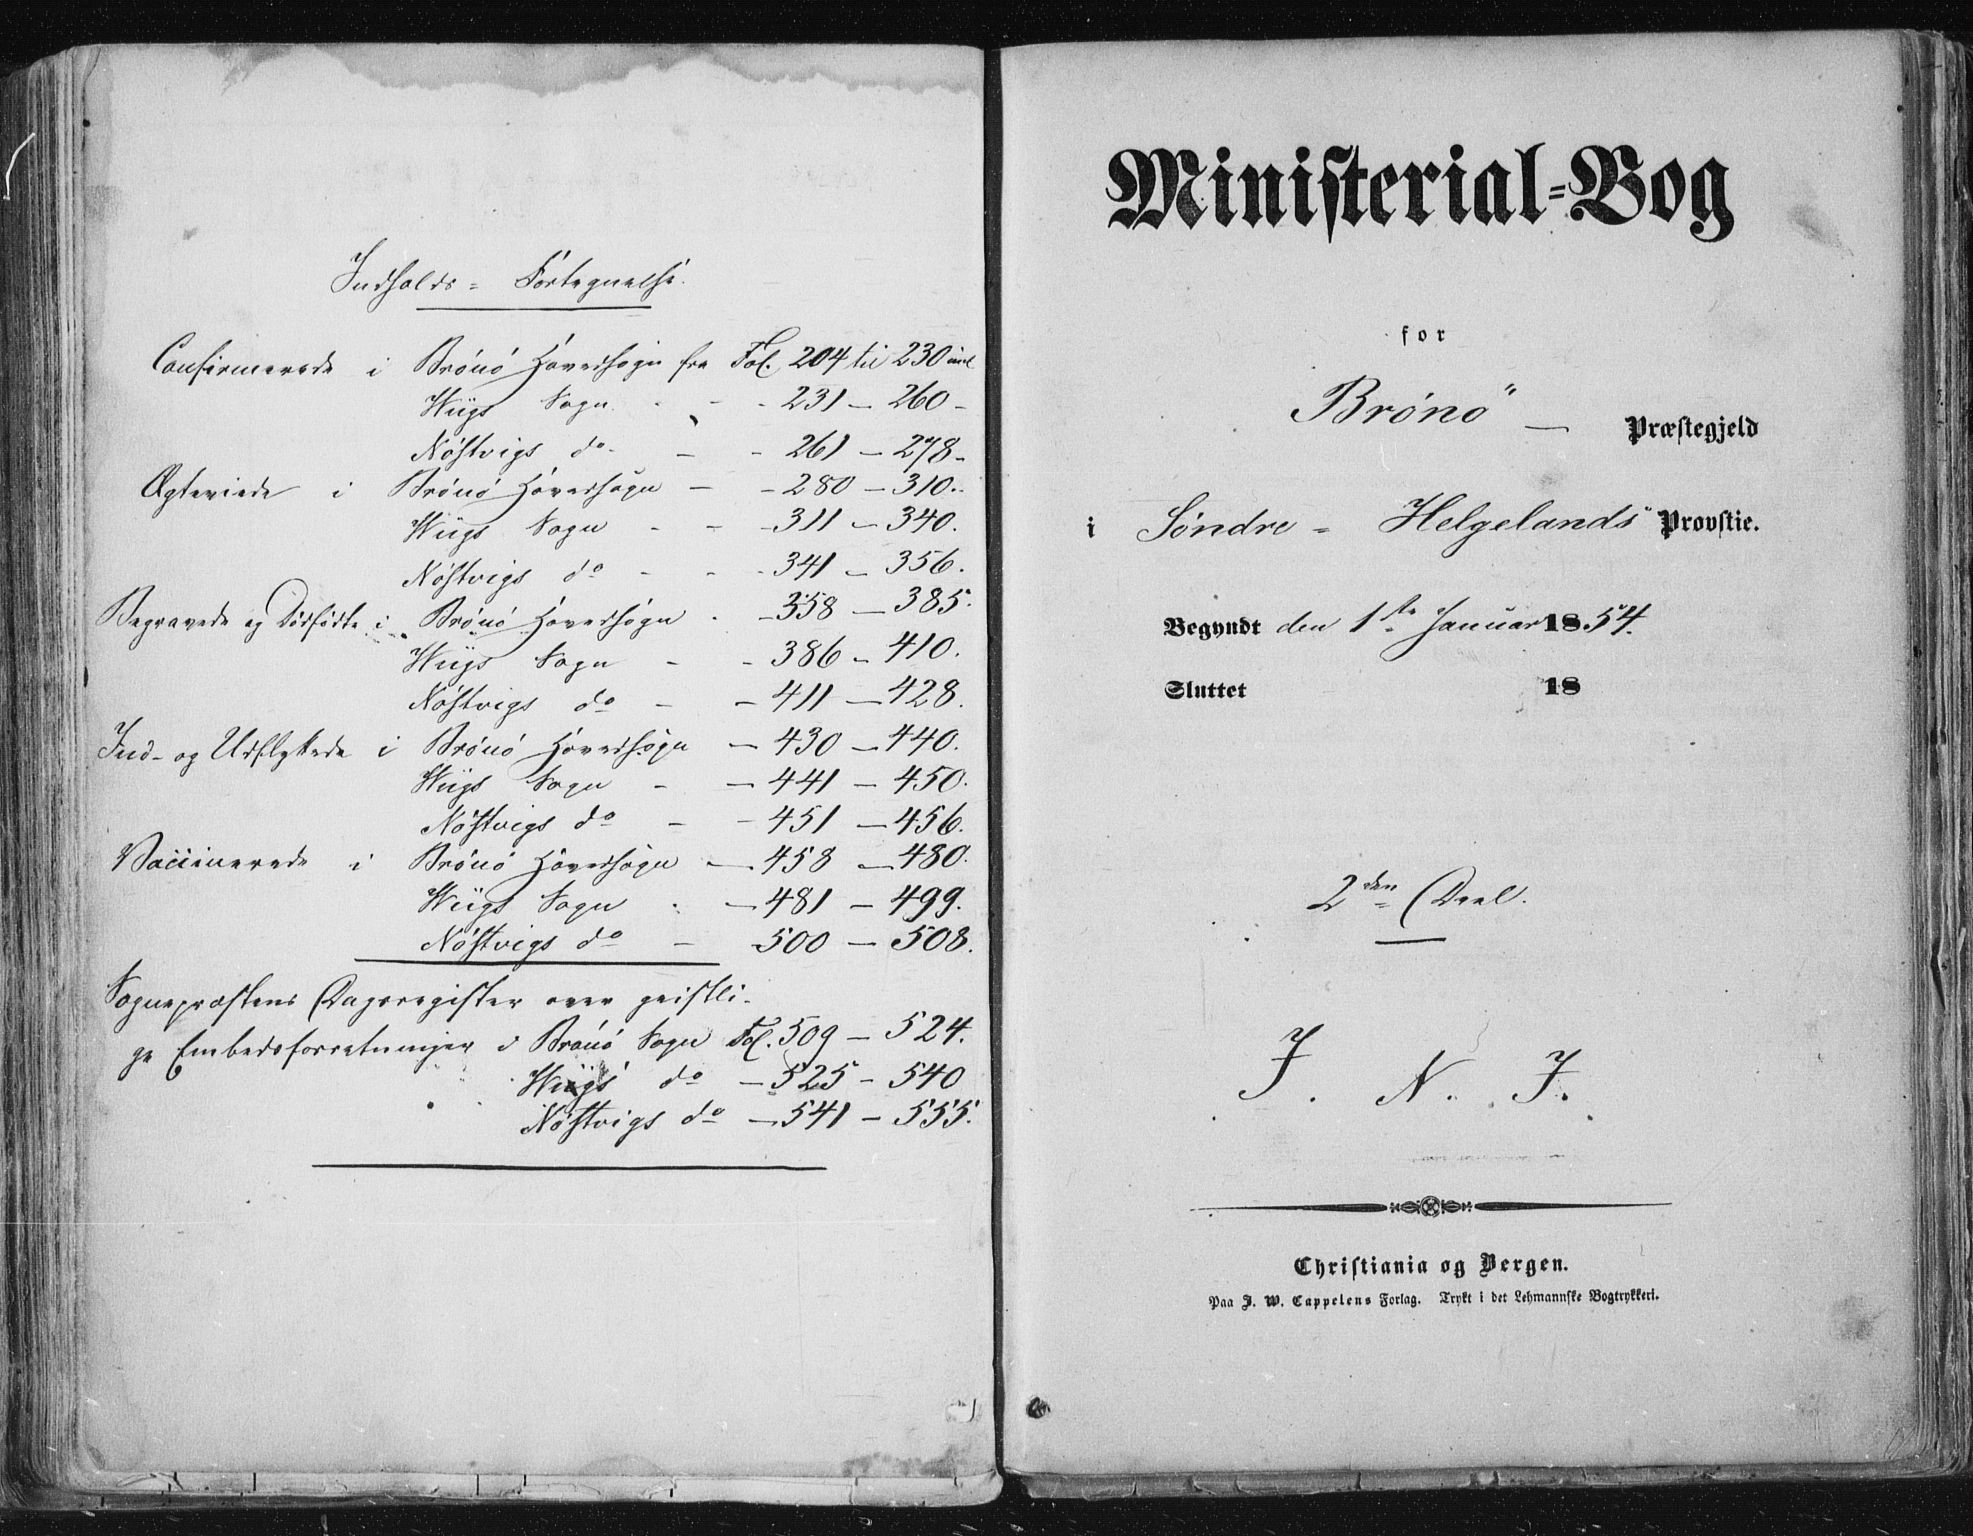 Indholds = Fortegnelse.
Confirmerede i Brönö Hovedsogn fra Fol. 204 til 230 incl
Wiigs Sogn - - - 231 - 260 -
Nöstvigs do - - - 261 - 278 -
Ægteviede i Brönö Hovedsogn - - 280 - 310.
Wiigs Sogn - - - 311 - 340.
Nöstvigs do - - - 341 - 356.
Begravede og Dödfödte i Brönö Hovedsogn - - 358 - 385.
Wiigs Sogn - - 386 - 410.
Nöstvigs do - - 411 - 428.
Ind- og Udflyttede i Brönö Hovedsogn - 430 - 440.
Wiigs Sogn - - 441 - 450.
Nöstvigs do - - 451 - 456.
Vaccinerede i Brönö Hovedsogn - 458 - 480.
Wiigs Sogn - - 481 - 499.
Nöstvigs do - 500 - 508.
Sognepræstens Dagsregister over geistli-
ge Embedsforretninger i Brönö Sogn Fol. 509 - 524.
Wiigs do - 525 - 540
Nöstvigs do - 541 - 555.
Ministerial=Bog
for
Brönö - Præstegjeld
i Söndre - Helgelands Provstie.
Begyndt den 1ste Januar 1854.
Sluttet 18
2den Deel.
J. N. J.
Christiania og Bergen.
Paa J. W. Cappelens Forlag. Trykt i det Lehmannske Bogtrykkeri.